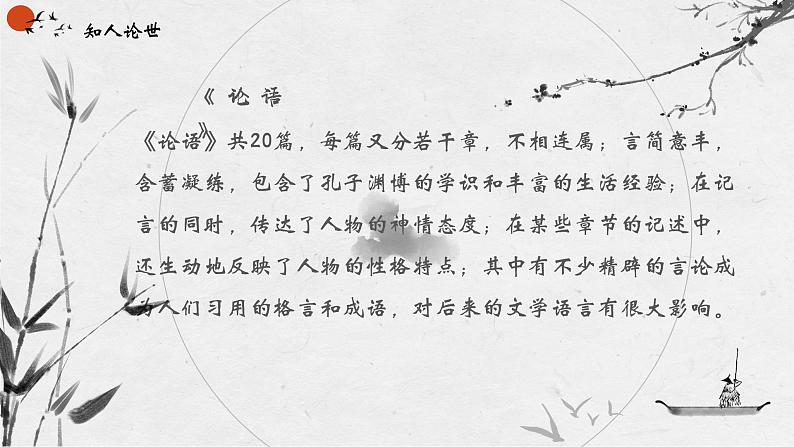 知人论世
《 论 语
》
《论语》共20篇，每篇又分若干章，不相连属；言简意丰，
含蓄凝练，包含了孔子渊博的学识和丰富的生活经验；在记
言的同时，传达了人物的神情态度；在某些章节的记述中，
还生动地反映了人物的性格特点；其中有不少精辟的言论成
为人们习用的格言和成语，对后来的文学语言有很大影响。